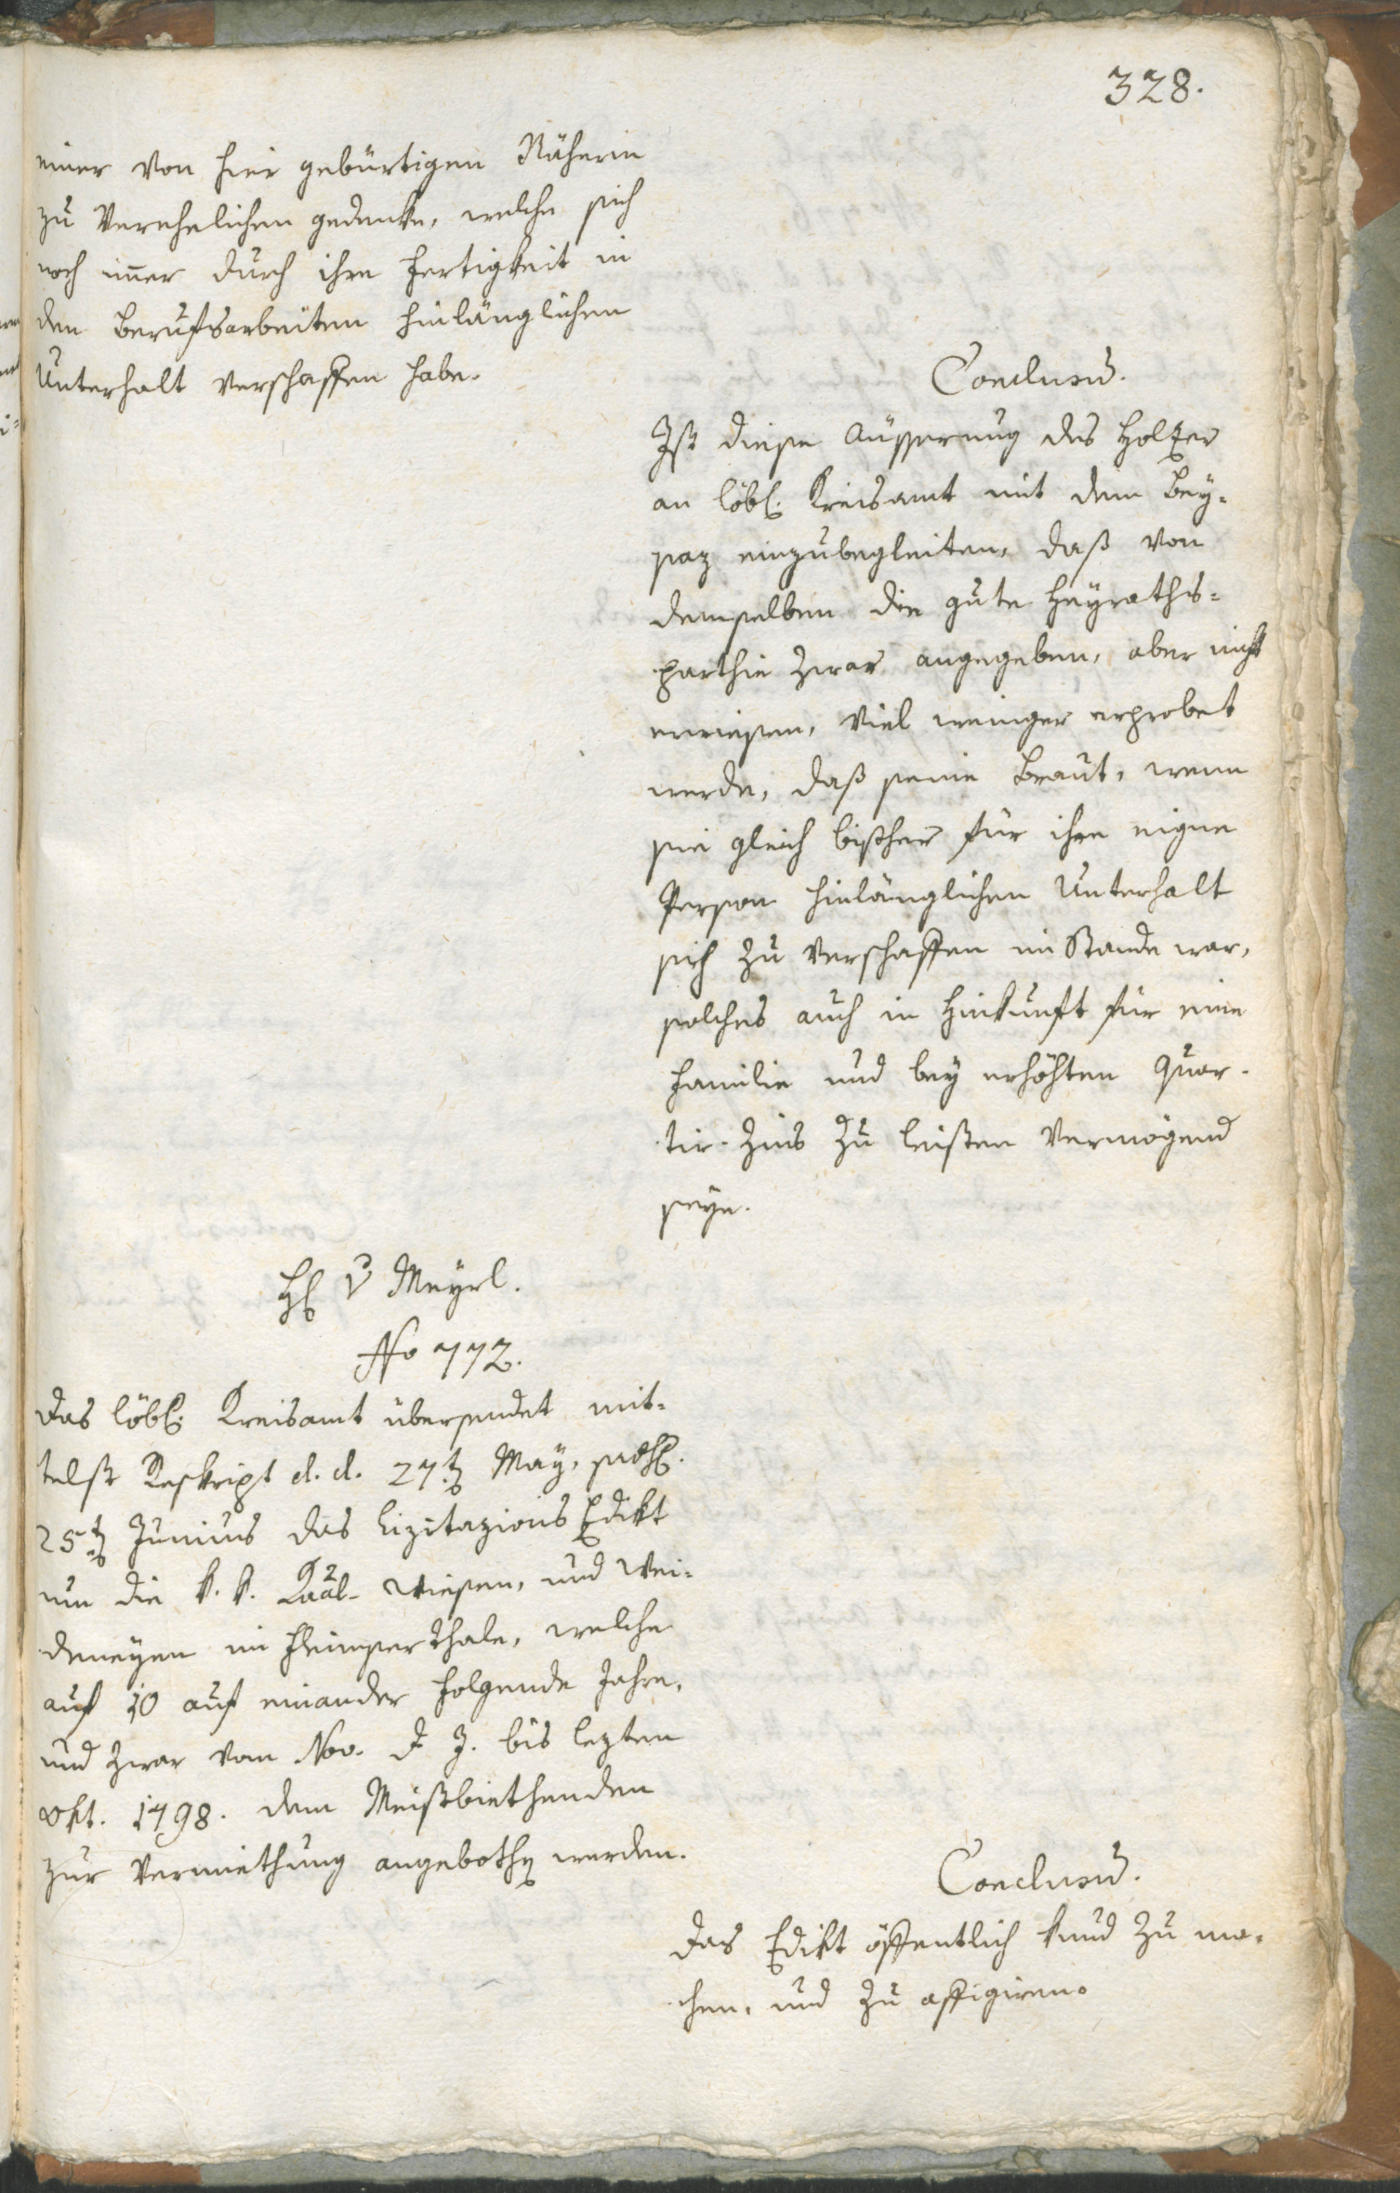 328.
einer von hier gebürtigen Näherin
zu verehelichen gedenke, welche sich
noch im̄er durch ihre Fertigkeit in
den Berufsarbeiten hinlänglichen
Unterhalt verschaffen habe.
Conclusum.
Ist diese Äusserung des Holzer
an löbl. Kreisamt mit dem Bey-
saz einzubegleiten, daß von
demselben die gute Heyraths-
parthie zwar angegeben, aber nicht
erwiesen, viel weniger erprobet
werde, daß seine Braut, wenn
sie gleich bisher für ihre eigne
Person hinlänglichen Unterhalt
sich zu verschaffen im Stande war,
solches auch in Hinkunft für eine
Familie und bey erhöhten Quar-
tir-Zins zu leisten vermögend
seye.
H. v Meyrl.
No 772.
Das löbl. Kreisamt übersendet mit-
telst Reskript d. d. 27.ten May,
25.ten Junius das Lizitazions Edikt
um die k. k. Kaal- Wiesen, und Wei-
deneyen im Fleimserthale, welche
auf 10 auf einander folgende Jahre,
und zwar vom Nov. d. J. bis lezten
Okt. 1798. dem Meistbiethenden
zur Vermiethung angebothen werden.
Conclusum.
Das Edikt öffentlich kund zu ma-
chen, und zu affigiren.